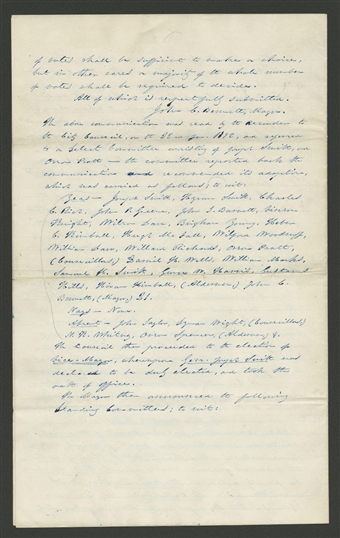 of votes shall be sufficient to make a choice,
but in other cases a majority of the whole number
of votes shall be required to decide.
All of which is respectfully submitted.
John C. Bennett, Mayor.
The above communication was read by the Recorder to
the City Council, on the 22nd Jan. 1842, and referred
to a Select Committee consisting of Joseph Smith, and
Orson Pratt — the committee reported back the
communication and recommended its adoption,
which was carried as follows; to wit:
Yeas — Joseph Smith, Hyrum Smith, Charles
C. Rich, John P. Greene, John S. Barnett, Vinson
Knight, Wilson Law, Brigham Young, Heber
C. Kimball, Hugh McFall, Wilford Woodruff,
William Law, Willard Richards, Orson Pratt,
(Councillors) Daniel H. Wells, William Marks,
Samuel H. Smith, George W. Harris, Gustavus
Hills, Hiram Kimball, (Aldermen,) John C.
Bennett, (Mayor,) 21.
Nays — None.
Absent — John Taylor, Lyman Wight, (Councillors)
N. K. Whitney, Orson Spencer, (Aldermen) 4.
The Council then proceeded to the election of
Vice-Mayor, whereupon Gen. Joseph Smith was
declared to be duly elected, and took the
oath of office.
The Mayor then announced the following
Standing Committees; to wit: